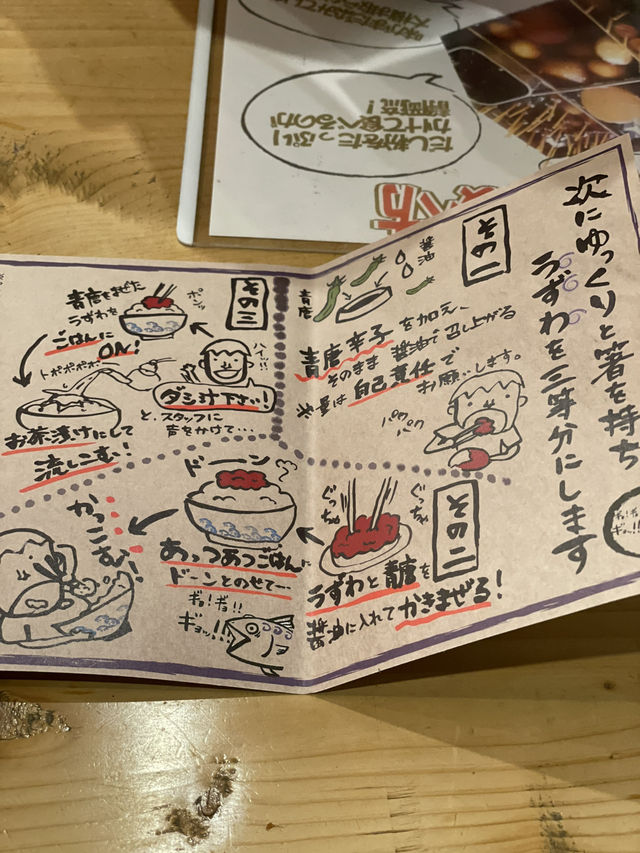 次にゆっくりと箸を持ち
うずわを三等分にします
その一
醤油
青唐
青唐辛子を加え、
そのまま醤油で召し上がる
※量は自己責任で
お願いします。
パクパク
その二
ぐっちゃ
ぐっちゃ
うずわと青唐を
醤油に入れてかきまぜる!
ドーン
あっつあつごはんに
ドーンとのせて…
ギョ!ギョ!!
ギョッ!!!
かっこむ!
その三
ハイッ!!
ポンッ
青唐をまぜた
うずわを
ごはんに
ON!
トポポポポポ
ダシ汁下さい!
と、スタッフに
声をかけて…
お茶漬けにして
流しこむ!
だし粉をたっぷり
かけて食べるのが
静岡流!
べ方